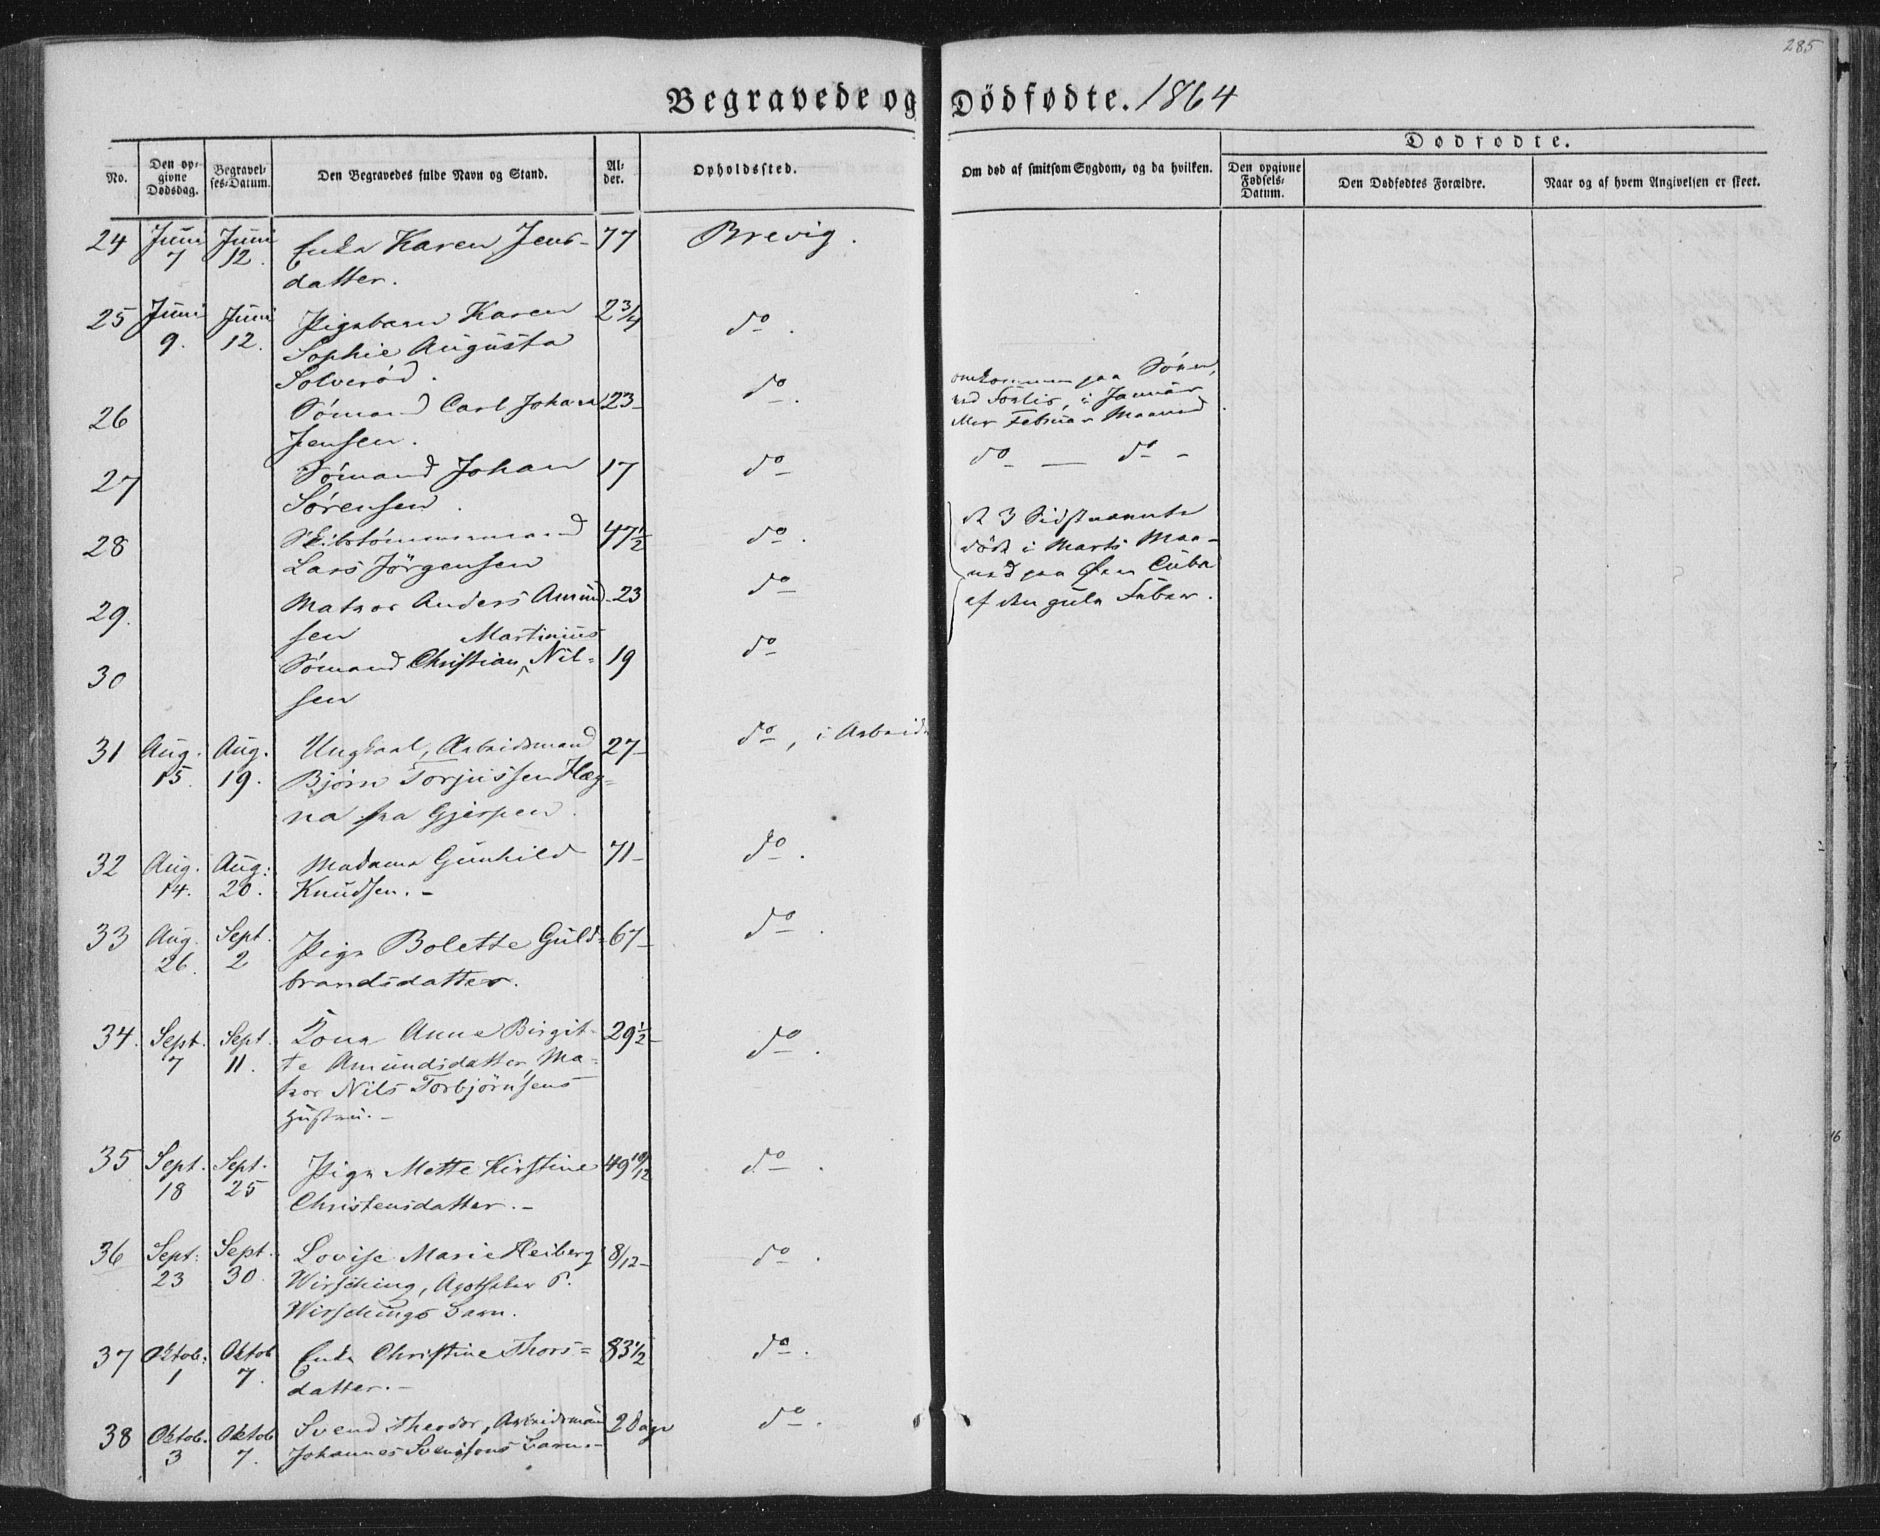 285
Begravede og Dödfødte. 1864
No.
Den op-
givne
Dødsdag.
Begravel-
ses-Datum.
Den Begravedes fulde Navn og Stand.
Al-
der.
Opholdssted.
Om død af smitsom Sygdom, og da hvilken.
Dødfødte.
Den opgivne
Fødsels-
Datum.
Den Dødfødtes Forældre.
Naar og af hvem Angivelsen er skeet.
24 Juni 7 Juni 12. Enke Karen Jens-
datter. 77 Brevig.
25 Juni 9. Juni 12. Pigebarn Karen
Sophie Augusta
Solverød. 2 3/4 do.
26 Sømand Carl Johan
Jensen. 23- do. omkommen paa Søen,
ved , i Januar
eller Februar Maaned.
27 Sømand Johan
Sørensen. 17 do do — do -
28 Skibstømmermand
Lars Jörgensen 47 1/2 do.
29. Matros Anders Amund-
sen 23 do
30 Sømand Christian Martinius Nil-
sen 19 do
de 3 Sidstnævnte
døde i Marts Maa-
ned paa Øen Cuba
af den gule Feber.
31 Aug. 15. Aug. 19. Ungkarl, Arbeidsmand
Bjørn Torjussen Hæg-
na fra Gjerpen. 27- do, i Arbeide
32 Aug. 14. Aug: 20. Madame Gunhild
Knudsen. - 71- do.
33 Aug. 26. Sept. 2 Pige Bolette Guld-
brandsdatter. 67- do.
34. Sept. 7 Sept. 11. Kone Anne Birgit-
te Amundsdatter, Ma-
tros Nils Torbjørnsens
Hustru. - 29 1/2- do.
35 Sept. 18 Sept. 25 Pige Mette Kirstine
Christensdatter. - 49 10/12 do.
36 Sept: 23 Sept. 30. Lovise Marie Heiberg
Wirsching, Apotheker
Wirschings Barn. 8/12- do.
37 Oktob: 1 Oktob 7. Enke Christine Thors=
datter. - 83 1/2 do.
38 Oktob. 3 Oktob 7. Svend Theodor, Arbeidsmand
Johannes Svendsens Barn. - 2 Dage do.